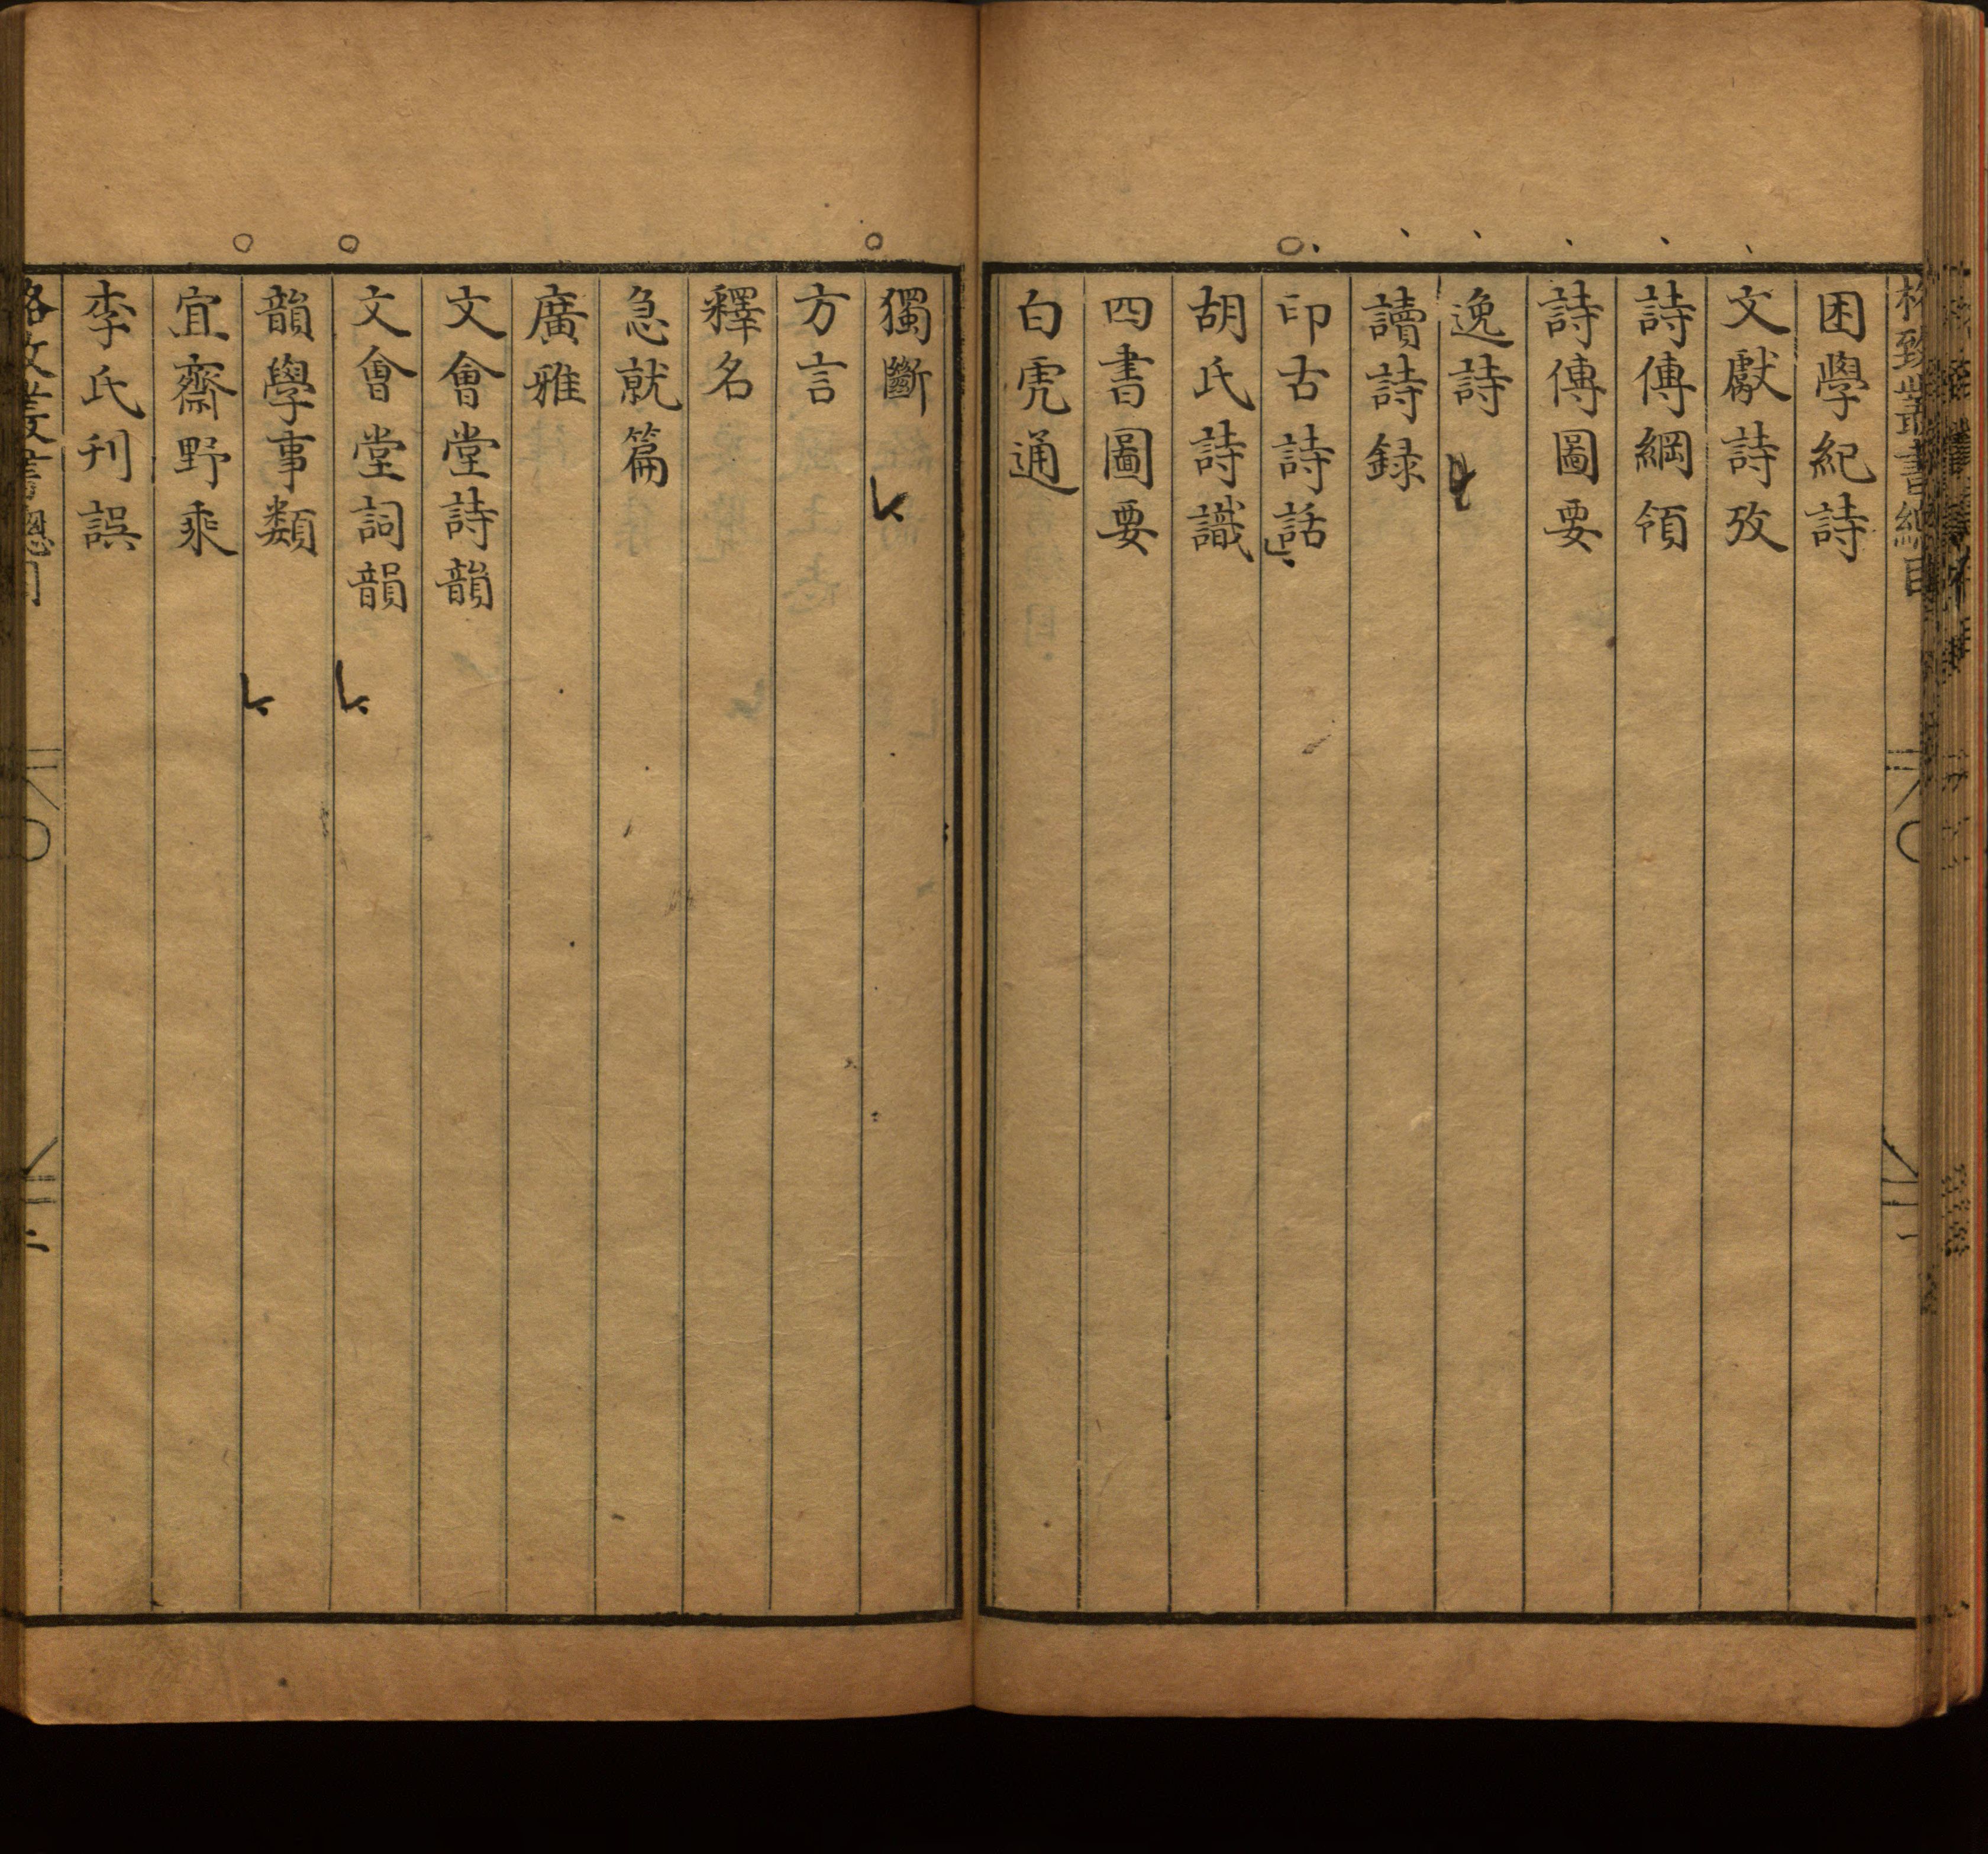 格致叢書總目
困學紀詩
文獻詩攷
詩傳綱領
詩傳圖要
逸詩
讀詩録
印古詩話
胡氏詩識
四書圖要
白虎通
獨斷
方言
釋名
急就篇
廣雅
文會堂詩韻
文會堂詞韻
韻學事類
宜齋野乘
李氏刊誤
格致叢書總目
二